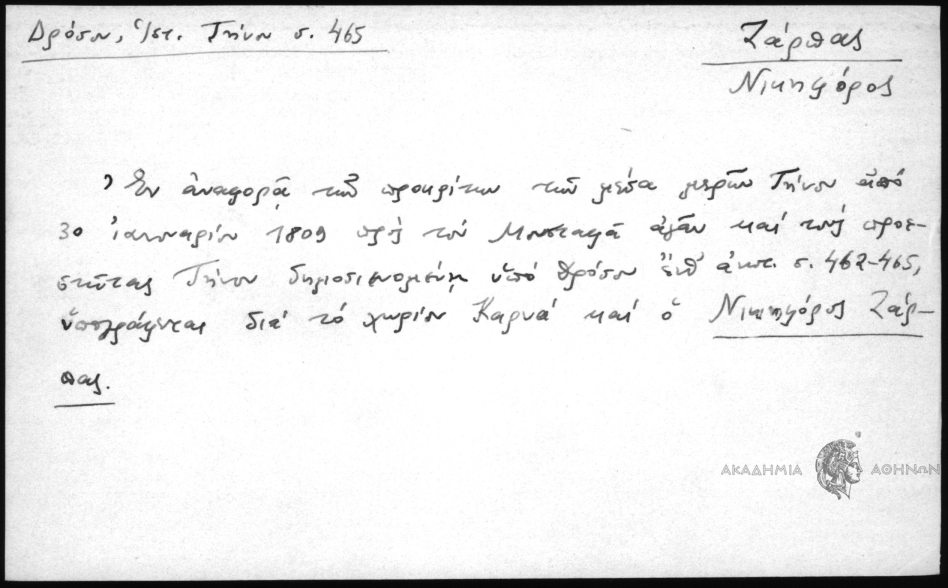 Δρόσου, Ἱστ. Τήνου σ. 465
Ζάρπας
Νικηφόρος
Ἐν ἀναφορᾷ τῶν προκρίτων τῶν μέσα μερῶν Τήνου ἀπό
30 ἰανουαρίου 1809 πρὸς τόν Μουσταφᾶ ἀγᾶν καί τούς προε-
στῶτας Τήνου δημοσιευομένῃ ὑπό Δρόσου ἔνθ' ἀνωτ. σ. 462-465,
ὑπογράφεται διά τό χωρίον Καρυά καί ὁ Νικηφόρος Ζάρ-
πας.
ΑΚΑΔΗΜΙΑ ΑΘΗΝΩΝ